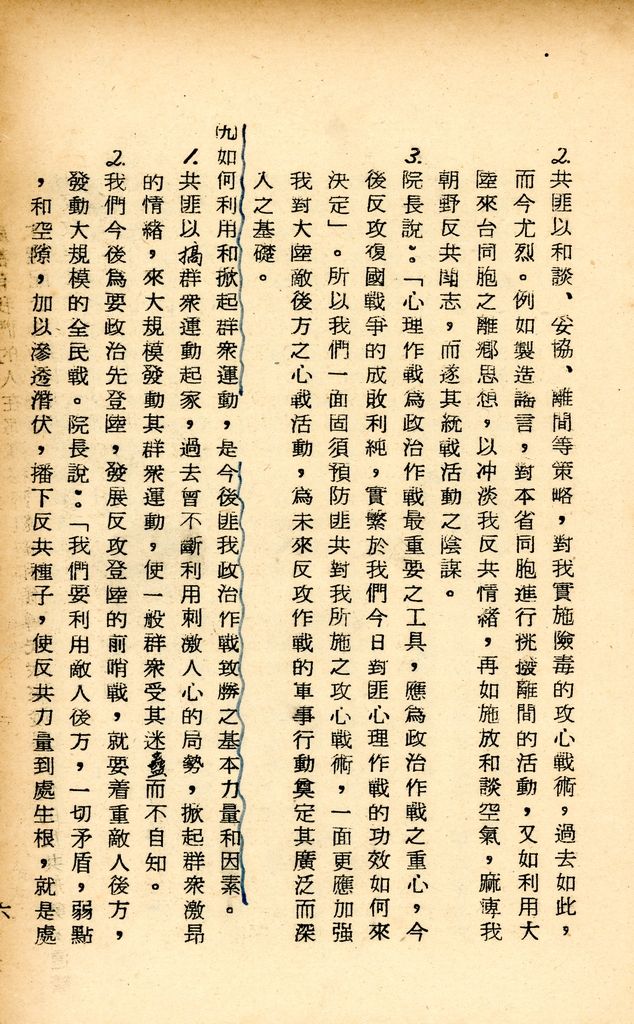 2.共匪以和談、妥協、離間等策略，對我實施險毒的攻心戰術，過去如此，
而今尤烈。例如製造謠言，對本省同胞進行挑撥離間的活動，又如利用大
陸來台同胞之離鄉思想，以冲淡我反共情緒，再如施放和談空氣，麻痺我
朝野反共鬪志，而遂其統戰活動之陰謀。
3.院長說：「心理作戰為政治作戰最重要之工具，應為政治作戰之重心，今
後反攻復國戰爭的成敗利純，實繫於我們今日對匪心理作戰的功效如何來
決定」。所以我們一面固須預防匪共對我所施之攻心戰術，一面更應加强
我對大陸敵後方之心戰活動，為未來反攻作戰的軍事行動奠定其廣泛而深
入之基礎。
(九)如何利用和掀起群衆運動，是今後匪我政治作戰致勝之基本力量和因素。
1.共匪以搞群衆運動起家，過去曾不斷利用刺激人心的局勢，掀起群衆激昂
的情緒，來大規模發動其群衆運動，使一般群衆受其迷蠱而不自知。
2.我們今後為要政治先登陸，發展反攻登陸的前哨戰，就要着重敵人後方，
發動大規模的全民戰。院長說：「我們要利用敵人後方，一切矛盾，弱點
，和空隙，加以滲透潛伏，播下反共種子，使反共力量到處生根，就是處
六